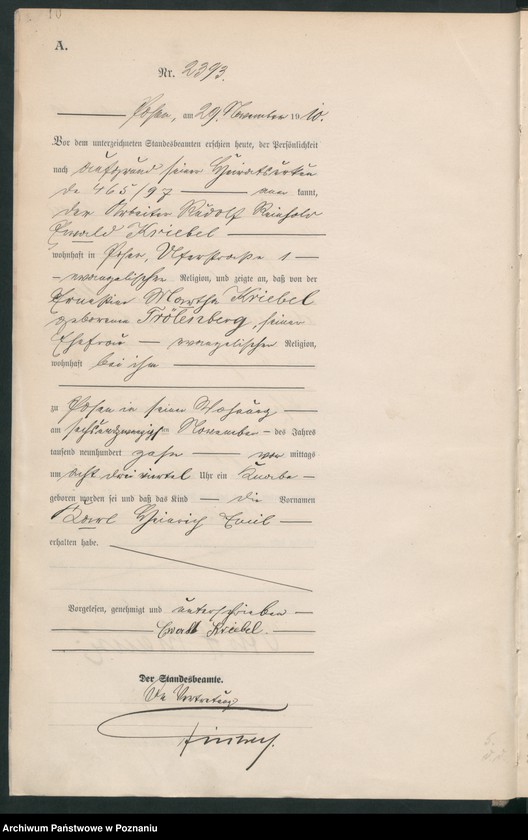 10
A.
Nr. 2393.
Posen, am 29. November 1910.
Vor dem unterzeichneten Standesbeamten erschien heute, der Persönlichkeit
nach auf Grund seiner Heiratsurkun
de 465/97 aner kannt,
der Arbeiter Rudolf Reinhold
Ewald Kriebel
wohnhaft in Posen,
evangelischer Religion, und zeigte an, daß von der
Ernestine Martha Kriebel
geborenen Trölenberg, seiner
Ehefrau evangelischer Religion,
wohnhaft bei ihm
zu Posen in seiner Wohnung
am sechsundzwanzigsten November des Jahres
tausend neunhundert zehn vor mittags
um acht drei viertel Uhr ein Knabe
geboren worden sei und daß das Kind die Vornamen
Karl Heinrich Emil
erhalten habe.
Vorgelesen, genehmigt und unterschrieben
Ewald Kriebel.
Der Standesbeamte.
In Vertretung
Archiwum Państwowe w Poznaniu